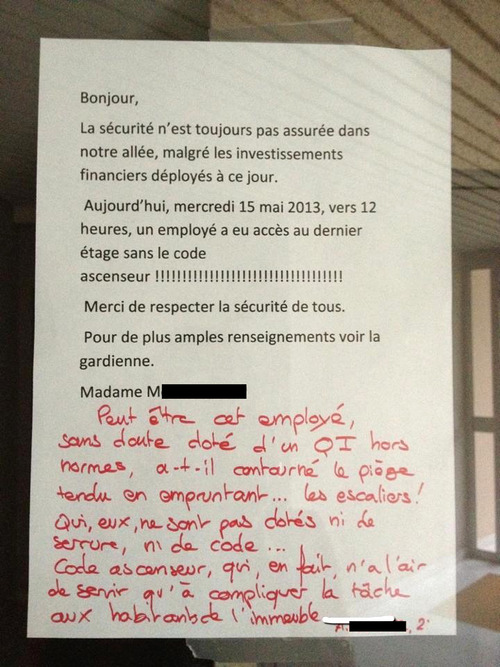 Bonjour,
La sécurité n'est toujours pas assurée dans
notre allée, malgré les investissements
financiers déployés à ce jour.
Aujourd'hui, mercredi 15 mai 2013, vers 12
heures, un employé a eu accès au dernier
étage sans le code
ascenseur !!!!!!!!!!!!!!!!!!!!!!!!!!!!!!!!!!!
Merci de respecter la sécurité de tous.
Pour de plus amples renseignements voir la
gardienne.
Madame M
Peut être cet employé,
sans doute doté d'un QI hors
normes, a-t-il contourné le piège
tendu en empruntant... les escaliers!
Qui, eux, ne sont pas dotés ni de
serrure, ni de code...
Code ascenseur, qui, en fait, n'a l'air
de servir qu'à compliquer la tâche
aux habitants de l'immeuble
A. , 2